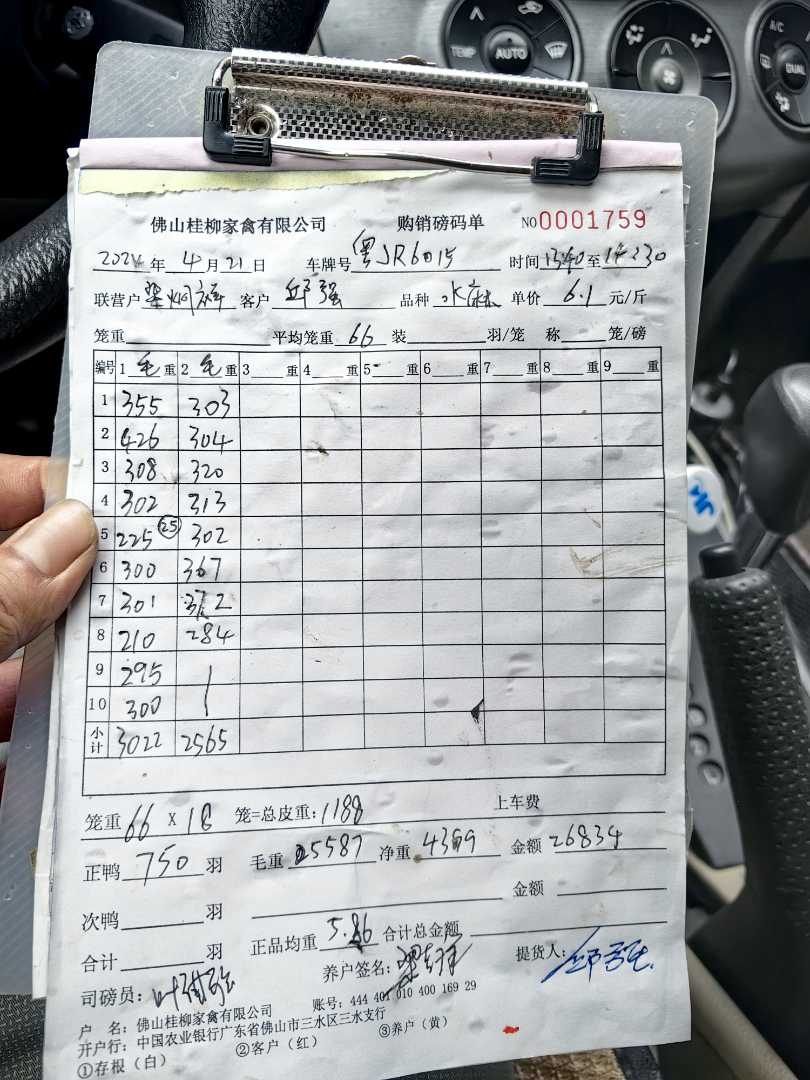 TEMP AUTO A/C DUAL
佛山桂柳家禽有限公司 购销磅码单 NO0001759
2024年4月21日 车牌号粤JR6015 时间1340至14:30
联营户 客户邱强 品种水麻 单价6.1元/斤
笼重 平均笼重66 装 羽/笼 称 笼/磅
编号 1毛重 2毛重 3 重 4 重 5 重 6 重 7 重 8 重 9 重
1 355 303
2 426 304
3 308 320
4 302 313
5 225 25 302
6 300 367
7 301 372
8 210 284
9 295
10 300
小计 3022 2565
笼重66X18笼=总皮重:1188 上车费
正鸭750羽 毛重5587 净重4399 金额26834
次鸭 羽 金额
合计 羽 正品均重5.86 合计总金额
司磅员: 养户签名: 提货人:邱强
户 名:佛山桂柳家禽有限公司 账号:444 401 010 400 169 29
开户行:中国农业银行广东省佛山市三水区三水支行
①存根(白) ②客户(红) ③养户(黄)